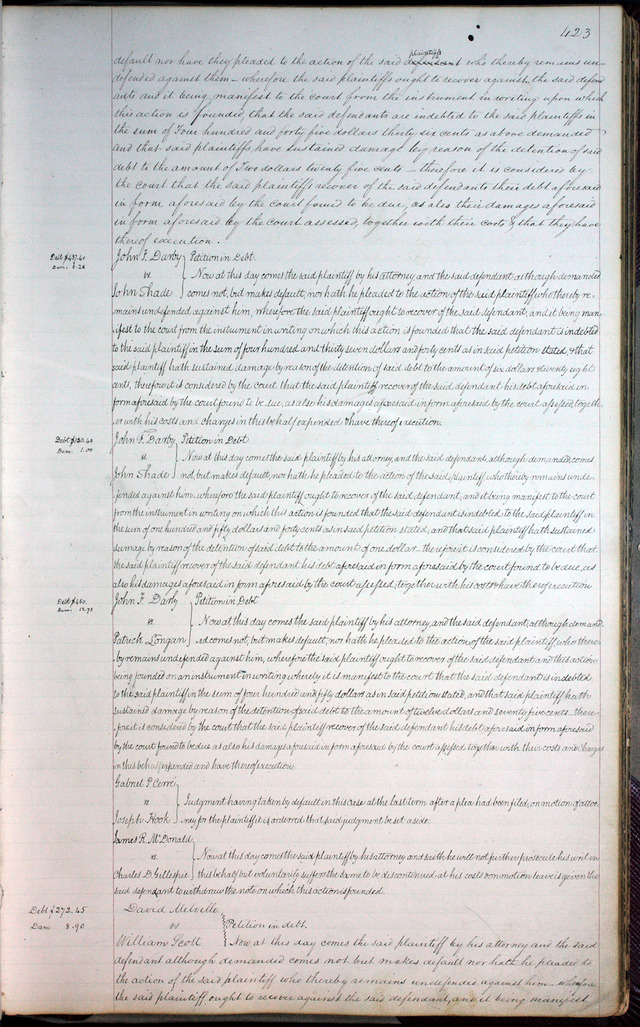 423
default nor have they pleaded to the action of the said defendant plaintiffs who thereby remains un-
defended against them - wherefore the said plaintiffs ought to recover against the said defend
ants and it being manifest to the court from the instrument in writing upon which
this action is founded, that the said defendants are indebted to the said plaintiffs in
the sum of Four hundred and forty five dollars thirty six cents as above demanded
and that said plaintiffs have sustained damage by reason of the detention of said
debt to the amount of Two dollars twenty five cents - therefore it is considered by
the court that the said plaintiffs recover of the said defendants their debt aforesaid
in form aforesaid by the court found to be due, as also their damages aforesaid
in form aforesaid by the court assessed, together with their costs & that they have
thereof execution.
Debt $437.40
Dam. 6.28
John F. Darby Petition in Debt
vs. Now at this day comes the said plaintiff by his attorney, and the said defendant although demanded
John Shade comes not, but makes default, nor hath he pleaded to the action of the said plaintiff who thereby re-
mains undefended against him, wherefore the said plaintiff ought to recover of the said defendant, and it being man-
ifest to the court from the instrument in writing on which this action is founded that the said defendant is indebted
to the said plaintiff in the sum of four hundred and thirty seven dollars and forty cents as in said petition stated & that
said plaintiff hath sustained damage by reason of the detention of said debt to the amount of six dollars & twenty eight
cents, therefore it is considered by the court that the said plaintiff recover of the said defendant his debt aforesaid in
form aforesaid by the court found to be due, as also his damages aforesaid in form aforesaid by the court assessed, togeth-
er with his costs and charges in this behalf expended & have thereof execution.
Debt $150.40
Dam. 1.00
John F. Darby Petition in Debt
vs. Now at this day comes the said plaintiff by his attorney, and the said defendant although demanded comes
John Shade not, but makes default, nor hath he pleaded to the action of the said plaintiff, who thereby remains unde-
fended against him. wherefore the said plaintiff ought to recover of the said defendant, and it being manifest to the court
from the instrument in writing on which this action is founded that the said defendant is indebted to the said plaintiff in
the sum of one hundred and fifty dollars and forty cents as in said petition stated, and that said plaintiff hath sustained
damage by reason of the detention of said debt to the amount of one dollar therefore it is considered by the court that
the said plaintiff recover of the said defendant his debt aforesaid in form aforesaid by the court found to be due, as
also his damages aforesaid in form aforesaid by the court assessed, together with his costs & have thereof execution
Debt $450.
Dam. 12.75
John F. Darby Petition in Debt
vs. Now at this day comes the said plaintiff by his attorney, and the said defendant, although demand-
Patrick Longan ed comes not, but makes default, nor hath he pleaded to the action of the said plaintiff, who there-
by remains undefended against him, wherefore the said plaintiff ought to recover of the said defendant and this action
being founded on an instrument in writing whereby it is manifest to the court that the said defendant is indebted
to the said plaintiff in the sum of four hundred and fifty dollars as in said petition stated, and that said plaintiff hath
sustained damage by reason of the detention of said debt to the amount of twelve dollars and seventy five cents there-
fore it is considered by the court that the said plaintiff recover of the said defendant his debt aforesaid in form aforesaid
by the court found to be due as also his damages aforesaid in form aforesaid by the court assessed together with their costs and charges
in this behalf expended and have thereof execution
Gabriel P Cerré
vs Judgment having taken by default in this case at the last term after a plea had been filed, on motion of attor-
Joseph Hook ney for the plaintiff it is ordered that said judgment be set aside.
James R. McDonald
vs. Now at this day comes the said plaintiff by his attorney and saith he will not further prosecute his writ in
Charles D. Gillespie this behalf but voluntarily suffers the same to be discontinued at his costs & on motion leave is given the
said defendant to withdraw the note on which this action is founded.
Debt $272.45
Dam 8.90
David Melville
vs Petition in debt.
William Scott Now at this day comes the said plaintiff by his attorney and the said
defendant although demanded comes not but makes default nor hath he pleaded to
the action of the said plaintiff who thereby remains undefended against him - wherefore
the said plaintiff ought to recover against the said defendant, and it being manifest